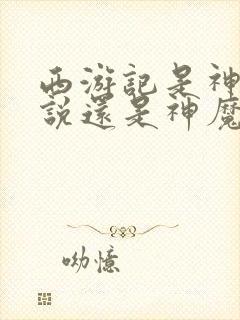 西游記是神
説還是神魔
呦憶